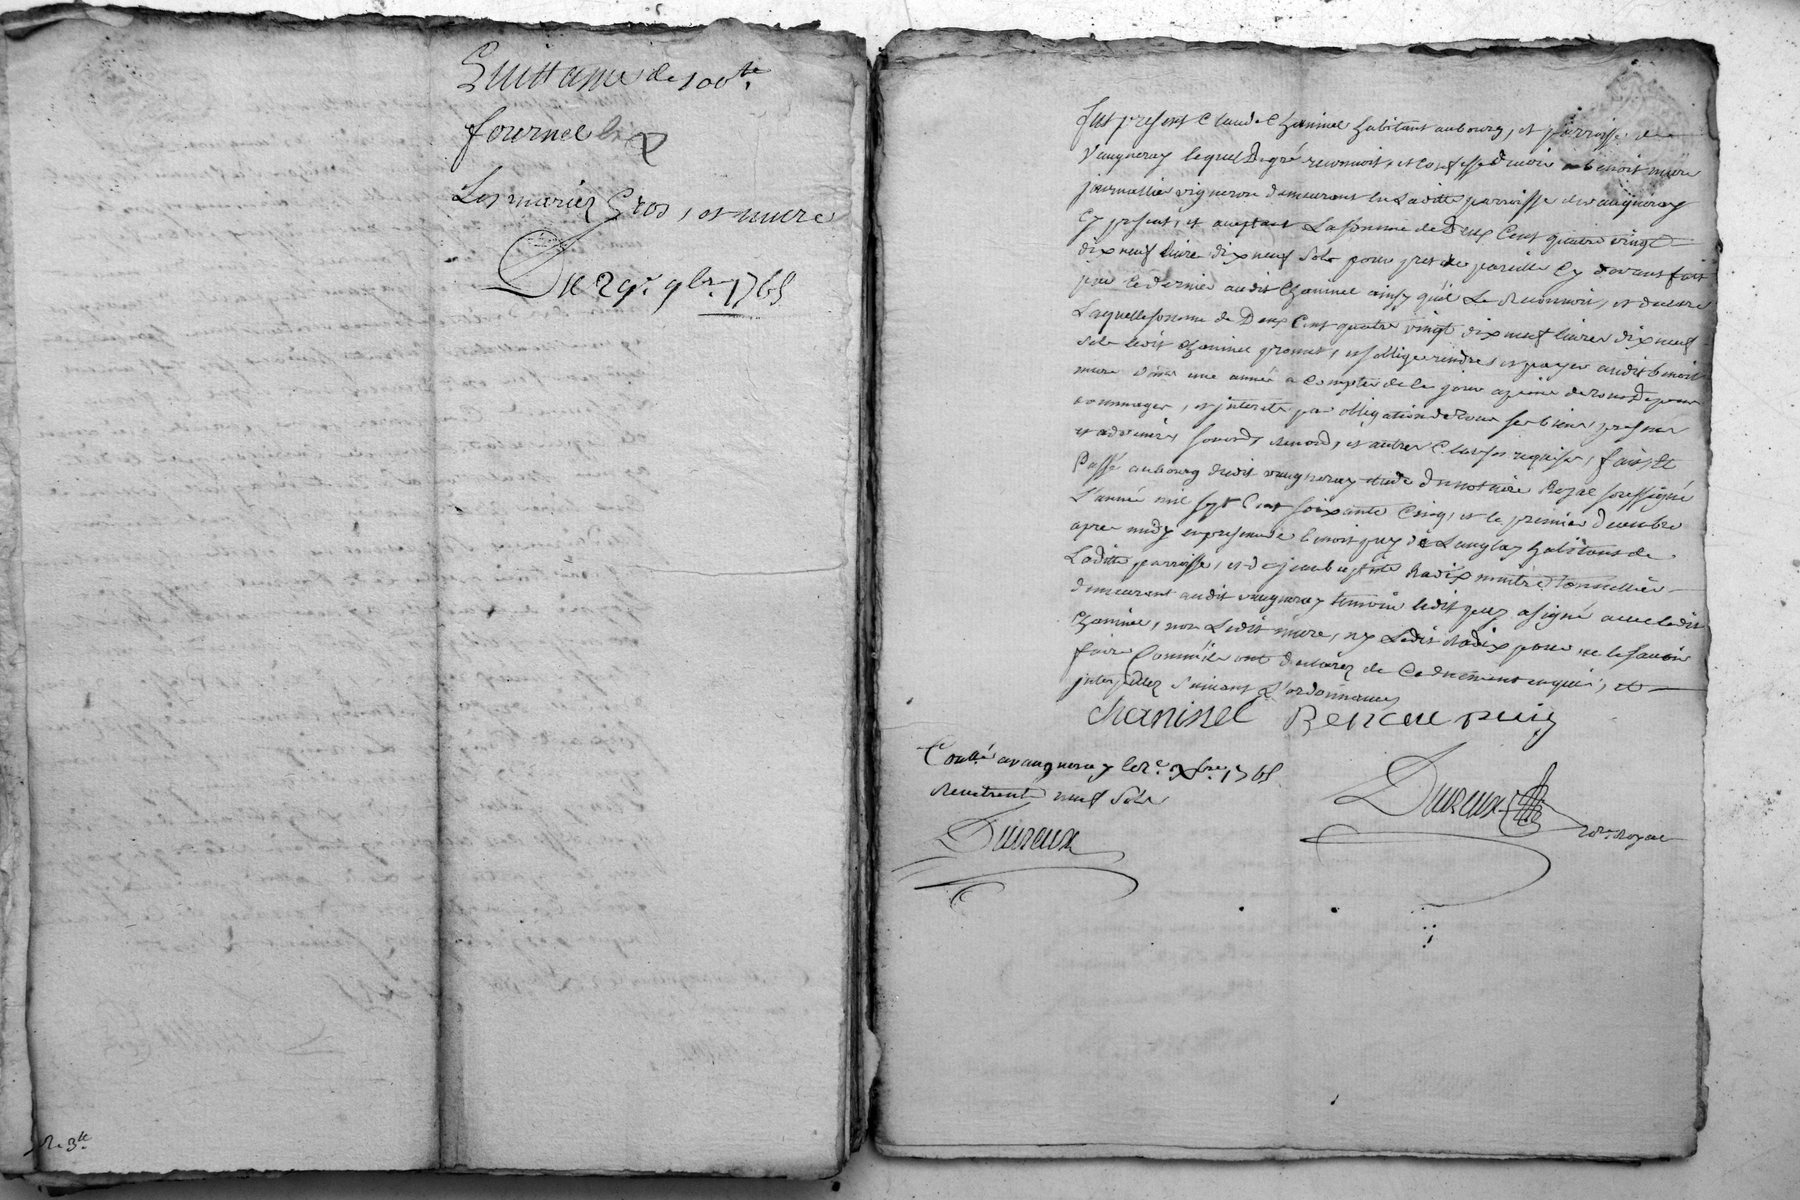 Quittance de 100 lt.
fournel
Les mariez Gros, et mure
Du 29e. 9bre. 1765
R. 3 lt.
fut present Claude Chaninel habitant au bourg, et parroisse de
Vaugneray lequel De gré reconnoit, et Confesse devoir a benoit mure
journallier vigneron demeurant en Laditte parroisse de vaugneray
Cy present, et acceptant La somme de Deux Cent quatre vingt
dix neuf livre dix neuf Sols pour prest de pareille Cy devant fait
par ce dernier audit Chaninel ainsy qu'il Le Reconnoit, et declare
Laquelle somme de Deux Cent quatre vingt dix neuf livres dix neuf
Sols ledit Chaninel promet, et s'oblige rendre, et payer audit benoit
mure dans une année a Compter de Ce jour a peine de tous Depens
dommages, et interets par obligation de tous ses biens, presens
et advenir, renond, et autres Clauses requises, fait, Et
Passé au bourg dudit vaugneray etude du notaire Royal soussigné
L'année mil sept Cent soixante Cinq, et le premier decembre
apres midy en presence de benoit puy de habitant de
Laditte parroisse, et de jean baptiste Radix maitre Tonnellier
demeurant audit vaugneray temoins ledit puy a signé avec ledit
Chaninel, non Ledit mure, ny Ledit Radix pour ne le savoir
faire Comme ils ont declarez de Ce duement enquis, et
interpellez suivant L'ordonnance
chaninel Benoit puiy
Conllé a vaugneray le 2e. Xbre. 1765
Reçu trente neuf Sols
Dureux
Dureux
nore. Royal